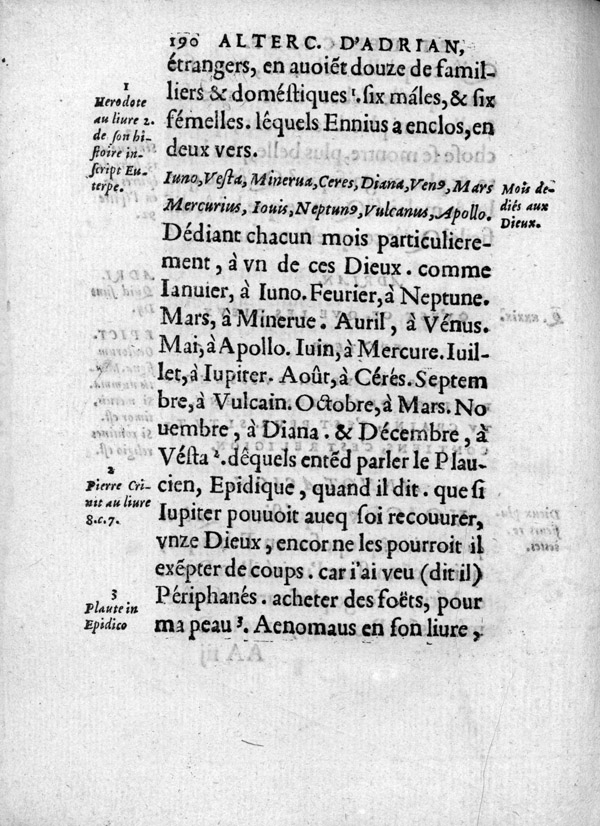 190 ALTERC. D'ADRIAN,
étrangers, en auoiẽt douze de famil-
liers & doméſtiques ¹. ſix máles, & ſix
fémelles. léquels Ennius a enclos, en
deux vers.
Iuno, Veſta, Minerua, Ceres, Diana, Venꝰ, Mars
Mercurius, Iouis, Neptunꝰ, Vulcanus, Apollo.
Dédiant chacun mois particuliere-
ment, à vn de ces Dieux. comme
Ianuier, à Iuno. Feurier, à Neptune.
Mars, â Minerue. Auril, à Vénus.
Mai, à Apollo. Iuin, à Mercure. Iuil-
let, à Iupiter. Août, à Cérés. Septem
bre, à Vulcain. Octobre, à Mars. No
uembre, à Diana. & Décembre, à
Véſta ². déquels entẽd parler le Plau-
cien, Epidique, quand il dit. que ſi
Iupiter pouuoit aueq ſoi recouurer,
vnze Dieux, encor ne les pourroit il
exẽpter de coups. car i'ai veu (dit il)
Périphanés. acheter des foëts, pour
ma peau ³. Aenomaus en ſon liure,
1
Herodote
au liure 2.
de ſon hi-
ſtoire in-
ſcript Eu-
terpe.
Mois de-
diés aux
Dieux.
2
Pierre Cri-
nit au liure
8. c. 7.
3
Plaute in
Epidico